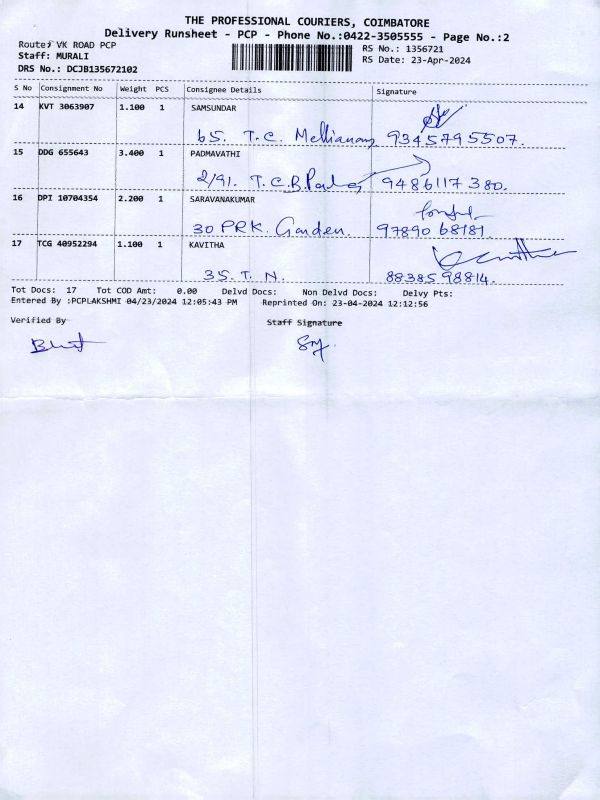 THE PROFESSIONAL COURIERS, COIMBATORE
Delivery Runsheet - PCP - Phone No.:0422-3505555 - Page No.:2
Route: VK ROAD PCP
RS No.: 1356721
Staff: MURALI
RS Date: 23-Apr-2024
DRS No.: DCJB135672102
S No Consignment No Weight PCS Consignee Details Signature
14 KVT 3063907 1.100 1 SAMSUNDAR
65. T.C. 9345795507.
15 DDG 655643 3.400 1 PADMAVATHI
2/91. T.C.B. 9486117380.
16 DPI 10704354 2.200 1 SARAVANAKUMAR
30 PRK. Garden. 97890 68181.
17 TCG 40952294 1.100 1 KAVITHA
35. T. N. 8838598814.
Tot Docs: 17 Tot COD Amt: 0.00 Delvd Docs: Non Delvd Docs: Delvy Pts:
Entered By :PCPLAKSHMI 04/23/2024 12:05:43 PM Reprinted On: 23-04-2024 12:12:56
Verified By Staff Signature